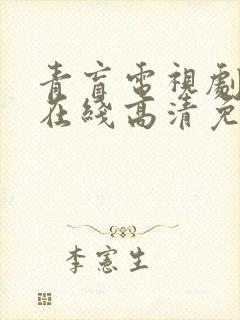 青盲電視劇
在綫高清免
李憲生